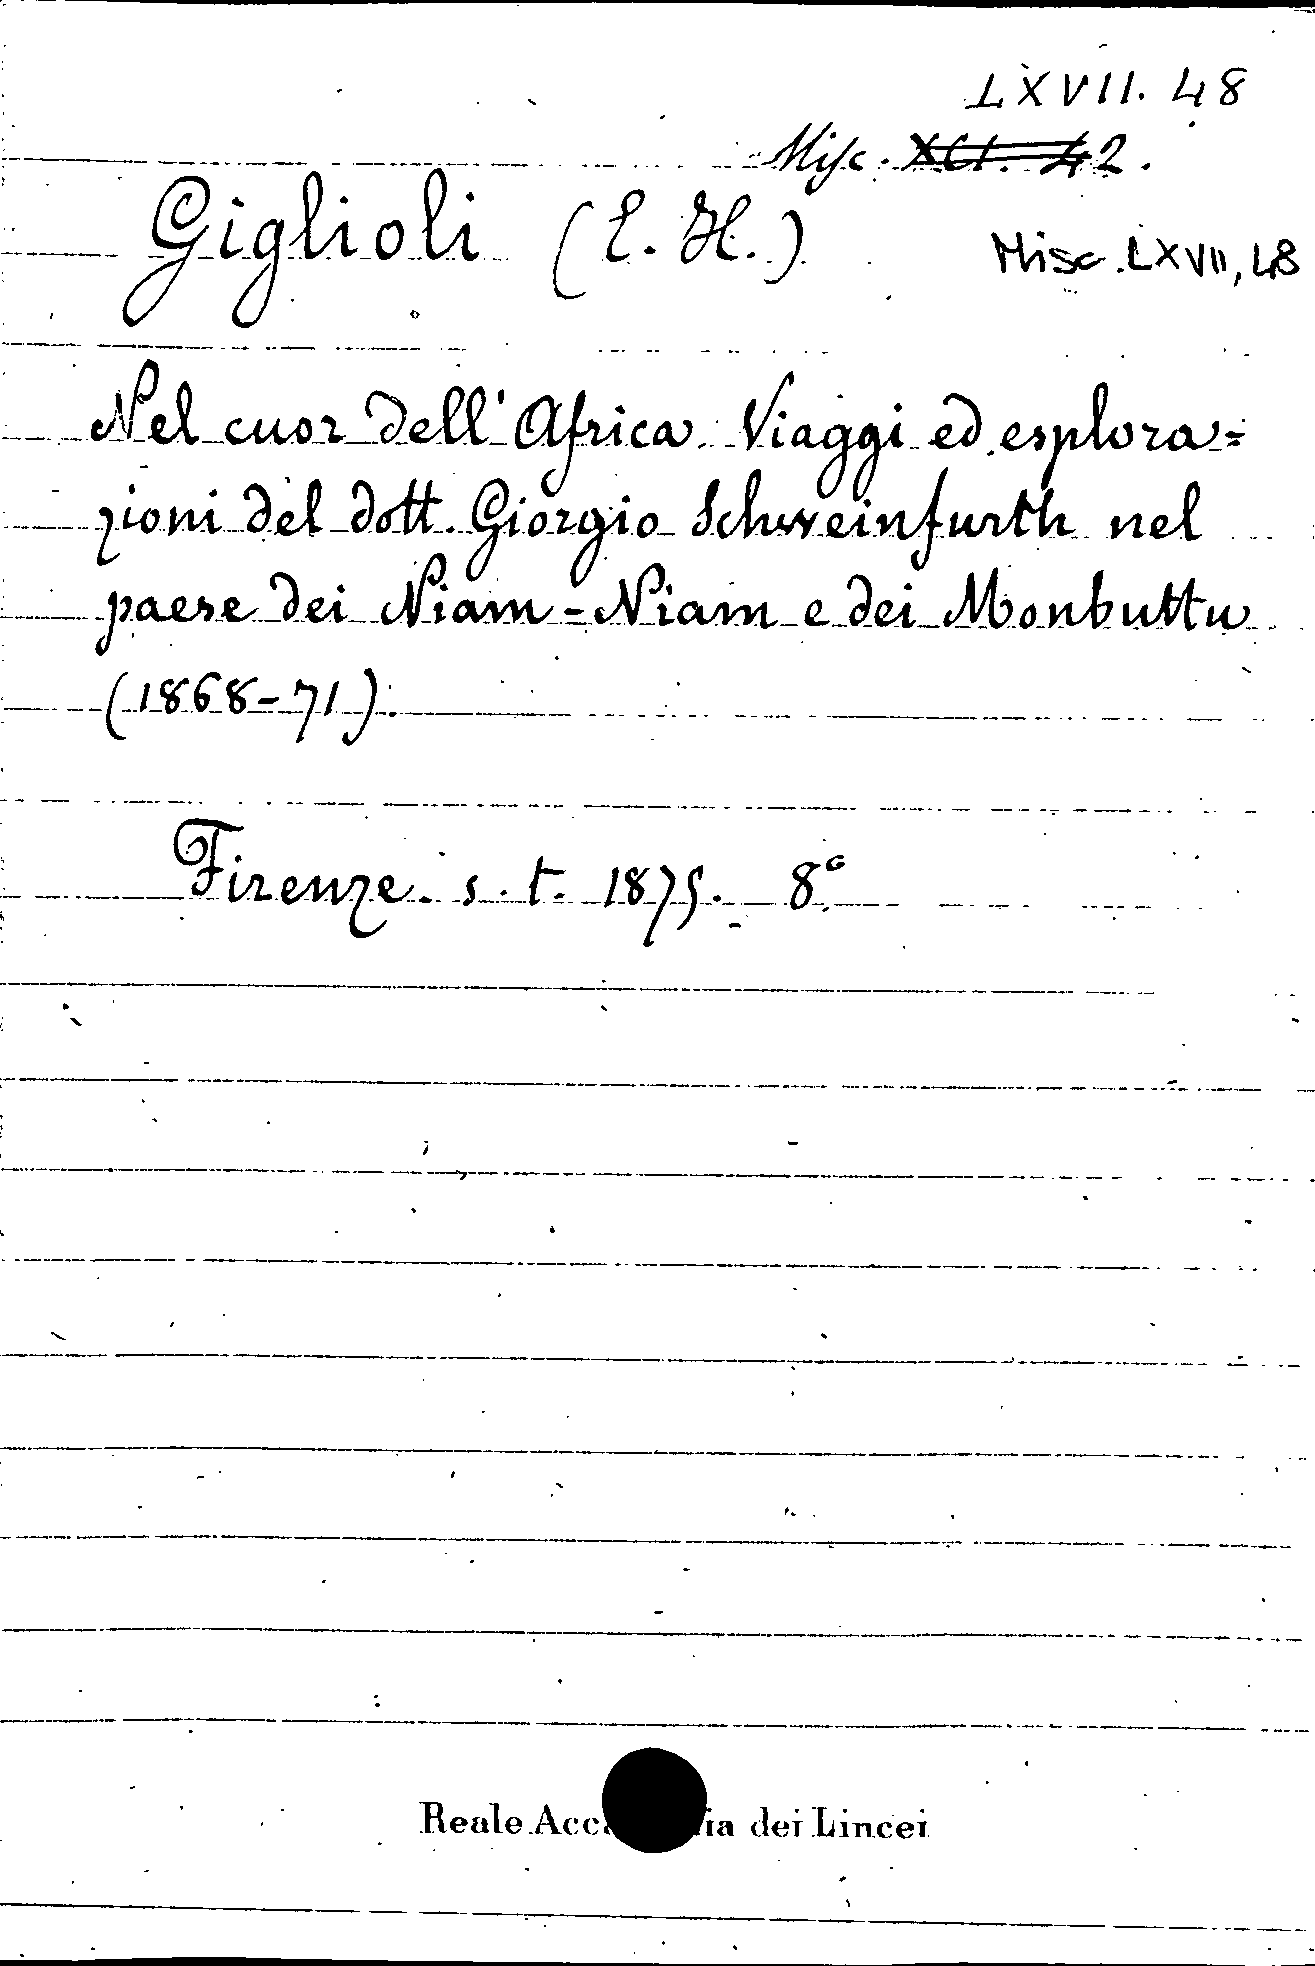 LXVII. 48
Misc. XCI. 42.
Giglioli (E. H.)
Misc. LXVII, 48
Nel cuor dell'Africa. Viaggi ed esplora=
zioni del dott. Giorgio Schweinfurth nel
paese dei Niam=Niam e dei Monbuttu
(1868-71).
Firenze. s. t. 1875. 8°
Reale Acca ia dei Lincei